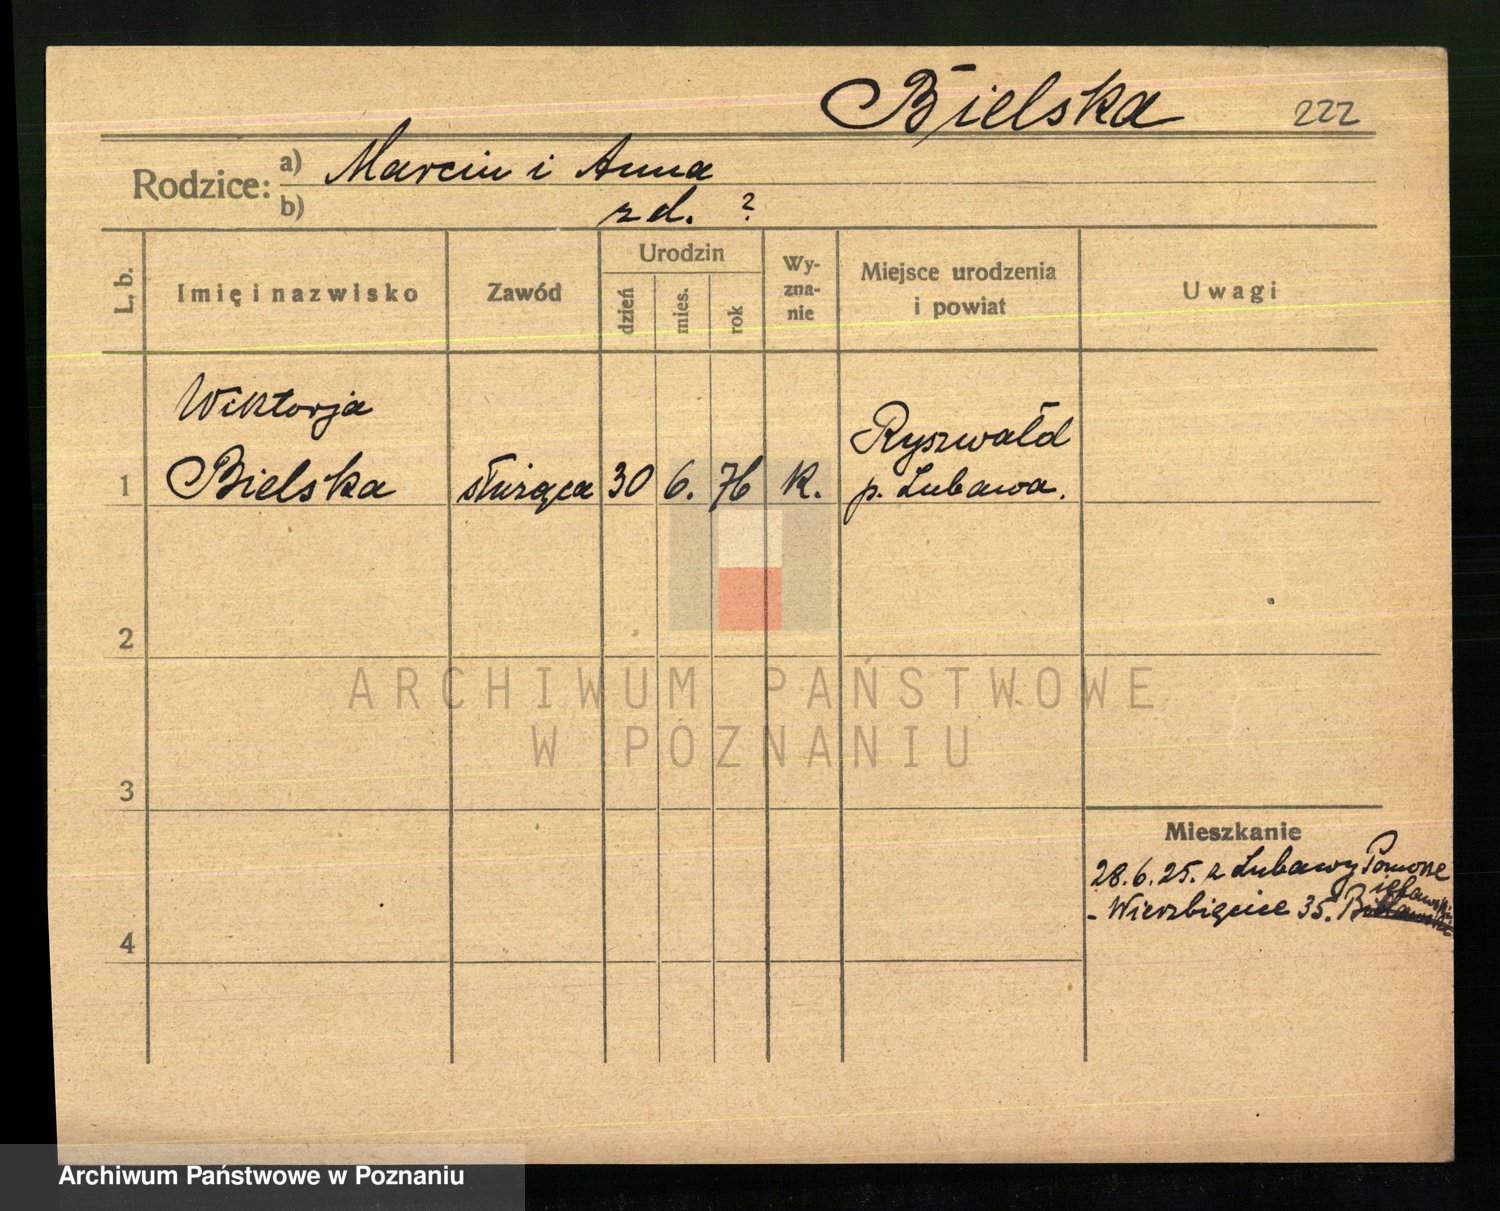 Bielska 222
Rodzice: a) Marcin i Anna
b) zd. ?
L. b.
Imię i nazwisko
Zawód
Urodzin
dzień
mies.
rok
Wy-
zna-
nie
Miejsce urodzenia
i powiat
Uwagi
Wiktorja
Bielska
1
służąca
30
6.
76
k.
Ryszwałd
p. Lubawa.
2
3
4
ARCHIWUM PAŃSTWOWE
W POZNANIU
Mieszkanie
28.6.25. z Lubawy Pomorze
- Wierzbięcice 35.
Archiwum Państwowe w Poznaniu